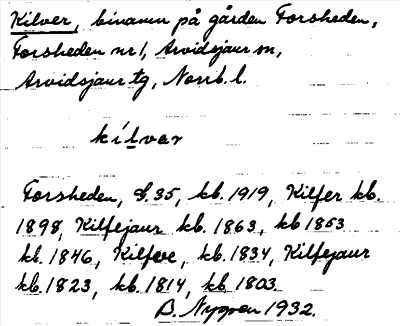 Kilver, binamn på gården Forsheden,
Forsheden nr 1, Arvidsjaur sn,
Arvidsjaur tg, Norrb. l.
kílvar
Forsheden, S. 35, kb. 1919, Kilfer kb.
1898, Kilfejaur kb. 1863, kb 1853
kb. 1846, Kilfve, kb. 1834, Kilfejaur
kb. 1823, kb. 1814, kb. 1803.
B. Nygren 1932.